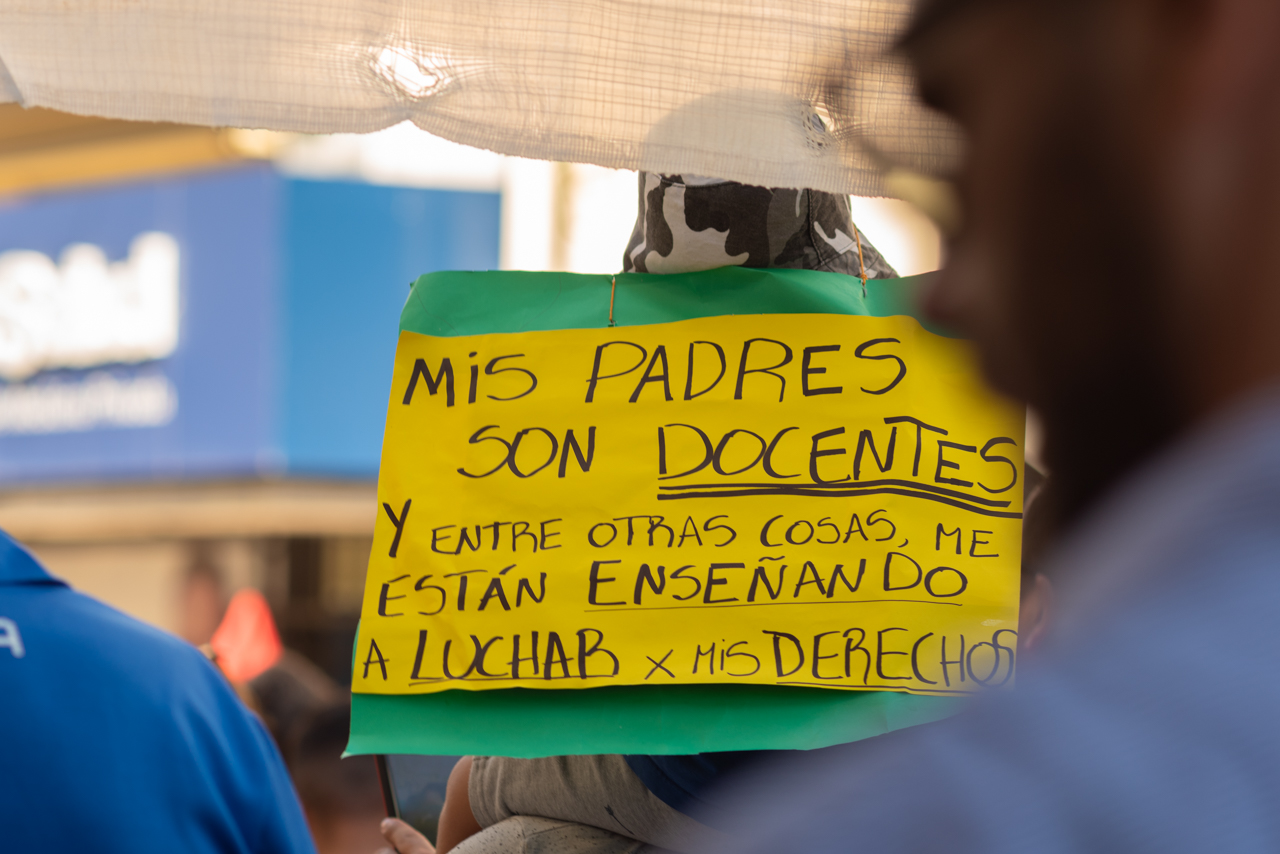 MIS PADRES
SON DOCENTES
Y ENTRE OTRAS COSAS, ME
ESTÁN ENSEÑANDO
A LUCHAR X MIS DERECHOS